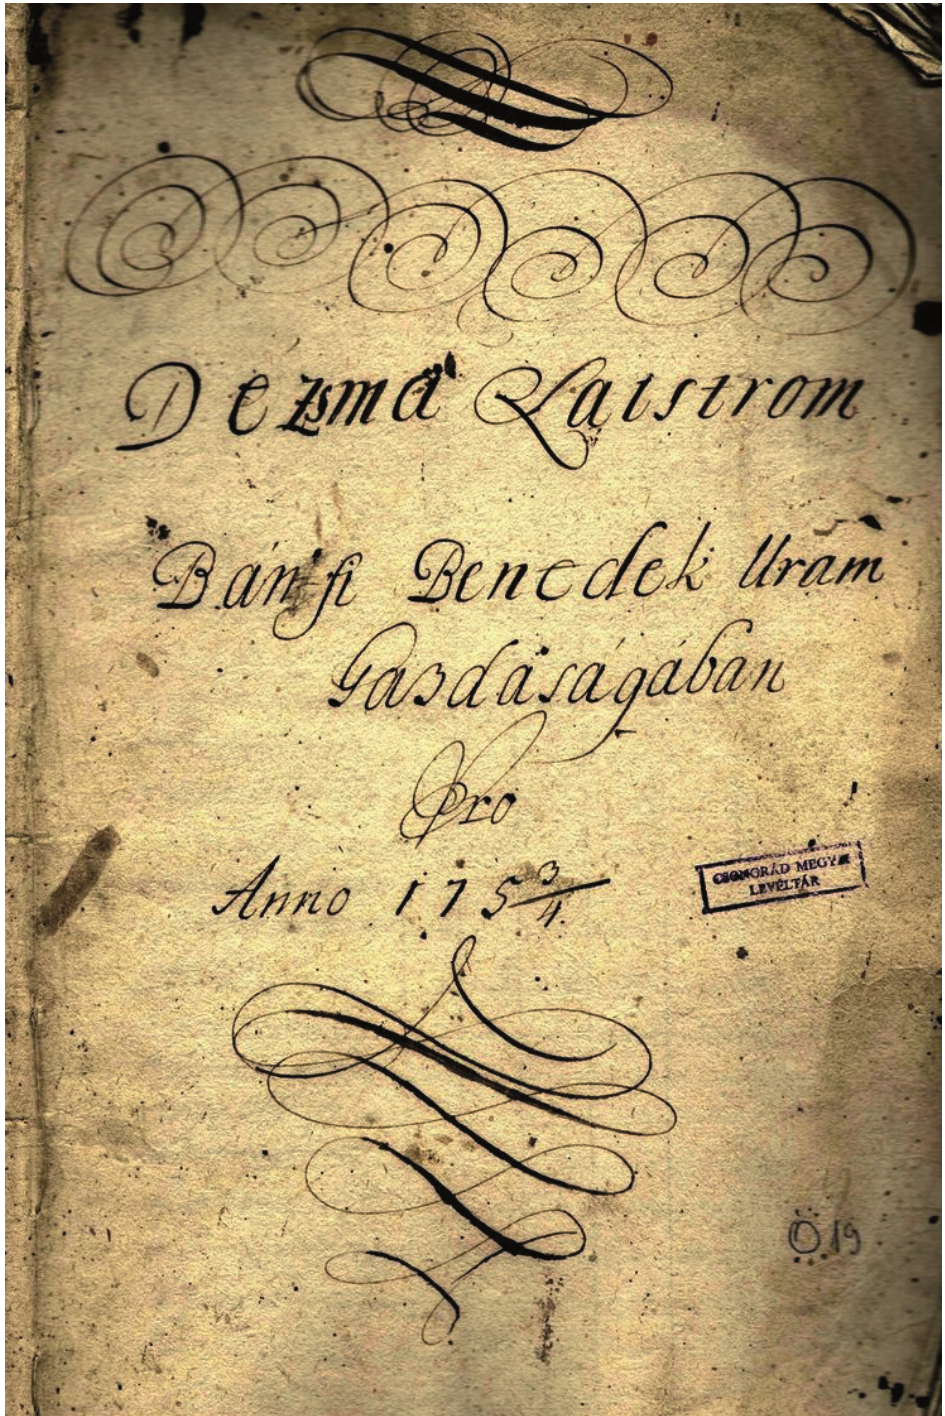 Dézsma Laistrom
Bánfi Benedek Uram
Gazdaságában
Pro
Anno 175 3/4
CSONGRÁD MEGYEI
LEVÉLTÁR
Ö 19